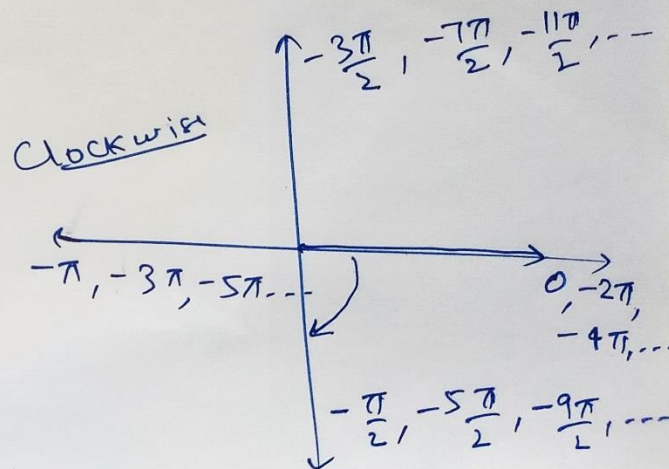 -3π/2, -7π/2, -11π/2, ...
Clockwise
-π, -3π, -5π...
0, -2π,
-4π, ...
-π/2, -5π/2, -9π/2, ....